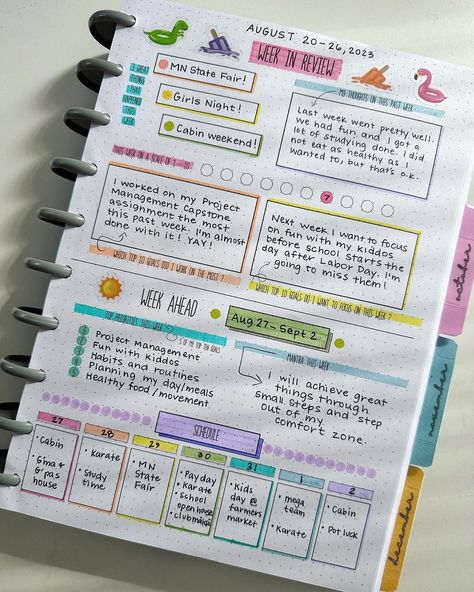 AUGUST 20-26, 2023
WEEK IN REVIEW
3 GREAT
THINGS
THAT
HAPPENED
THIS
WEEK
MN State Fair!
Girls Night!
Cabin weekend!
MY THOUGHTS ON THIS PAST WEEK
Last week went pretty well.
We had fun and I got a
lot of studying done. I did
not eat as healthy as I
wanted to, but that's o.k.
THIS WEEK ON A SCALE OF 1 - 10
7
I worked on my Project
Management Capstone
assignment the most
this past week. I'm almost
done with it! YAY!
WHICH TOP 10 GOALS DID I WORK ON THE MOST?
Next week I want to focus
on fun with my kiddos
before school starts the
day after Labor Day. I'm
going to miss them!
WHICH TOP 10 GOALS DO I WANT TO FOCUS ON THIS WEEK?
WEEK AHEAD
Aug 27-Sept 2
TOP PRIORITIES THIS WEEK
5 OF MY TOP TEN GOALS
Project Management
Fun with kiddos
Habits and routines
Planning my day/meals
Healthy food/movement
MANTRA THIS WEEK
I will achieve great
things through
small steps and step
out of my
comfort zone.
SCHEDULE
27
• Cabin
• Gma &
G'pas
house
28
• Karate
• Study
time
29
• MN
State
Fair
30
• Pay day
• Karate
• School
open house
31
• Kids
day @
farmers
market
1
• mega
team
• Karate
2
• Cabin
• Pot luck
october
november
december